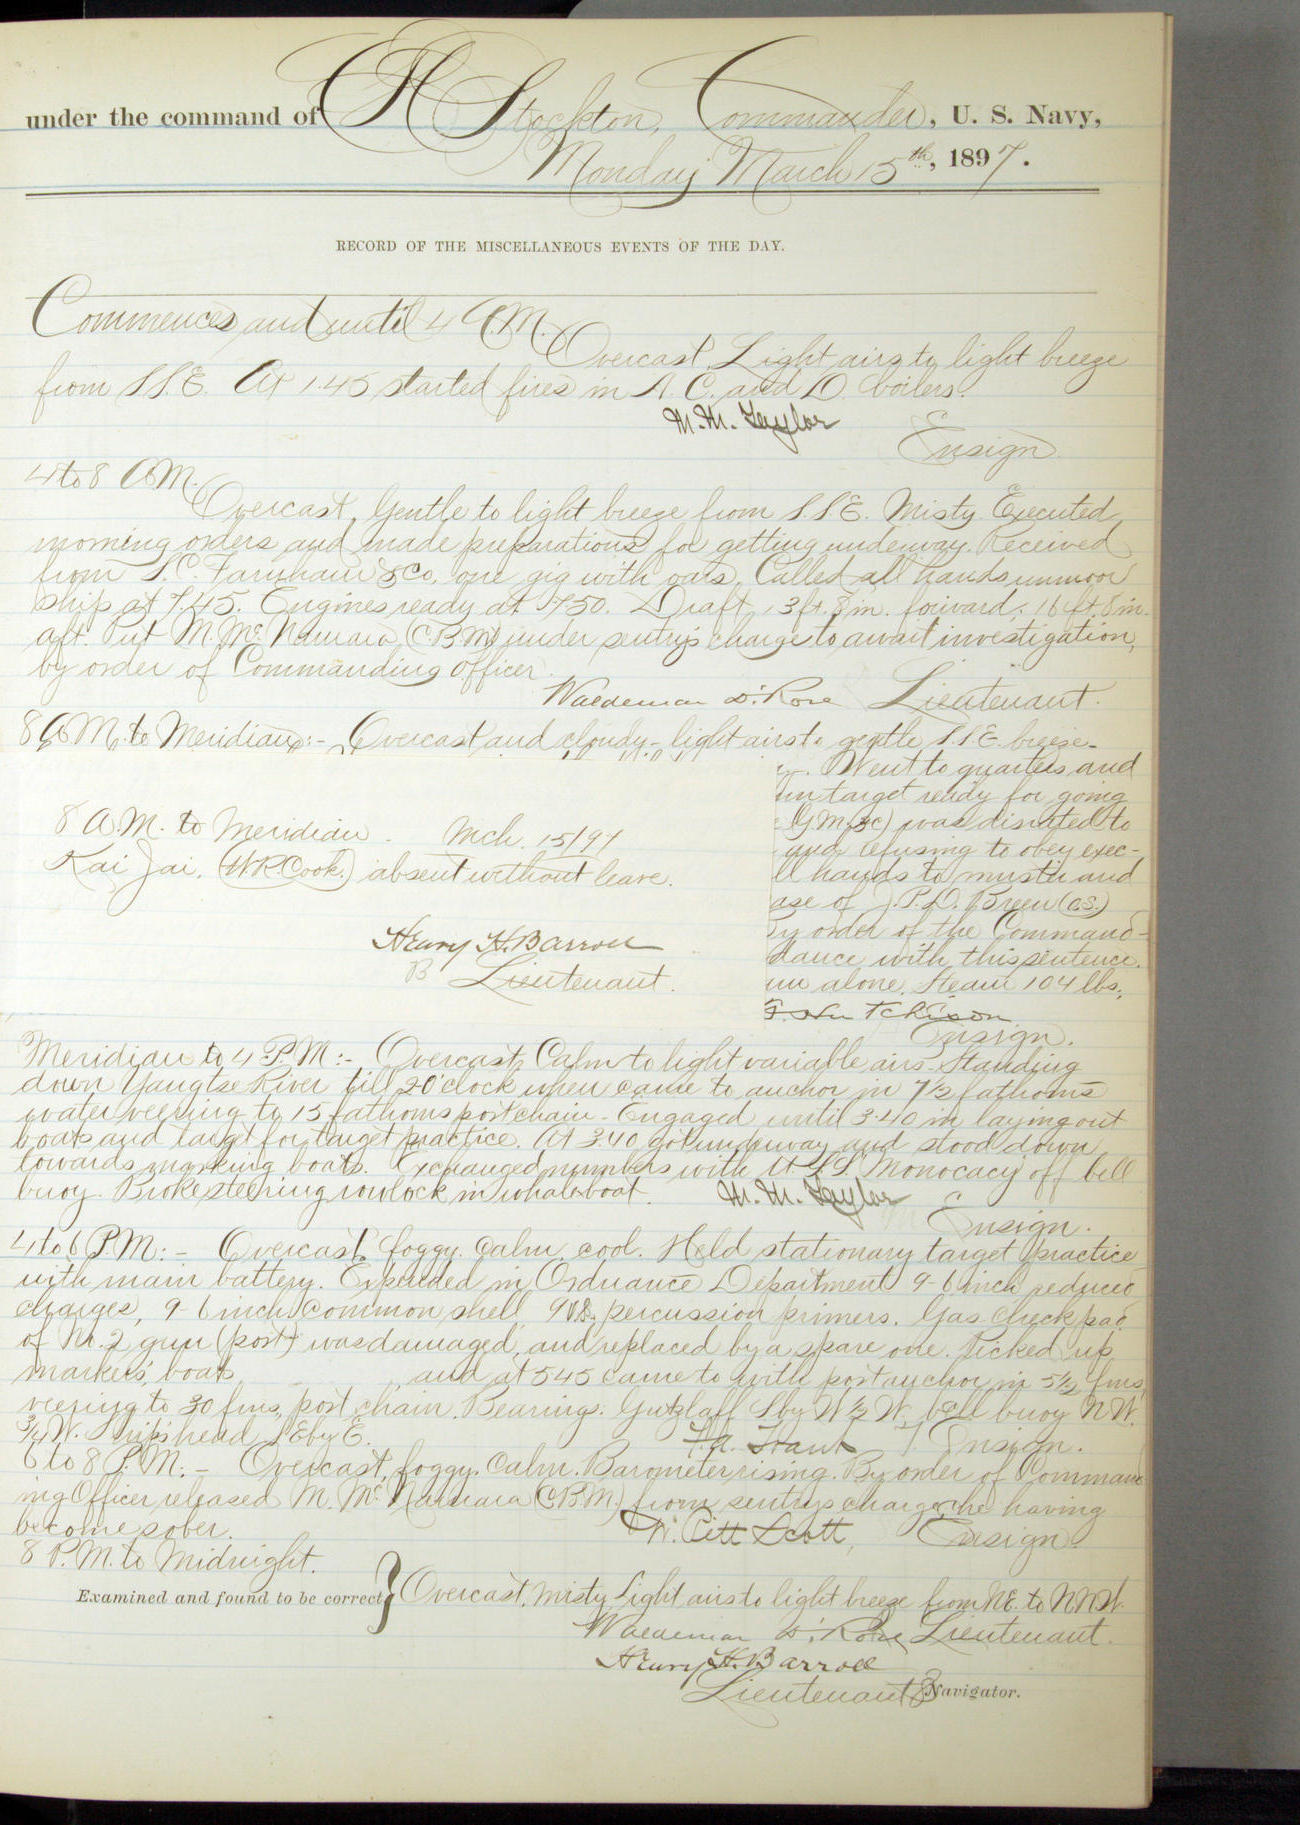 under the command of C H Stockton, Commander, U. S. Navy,
Monday March 15th, 1897.
RECORD OF THE MISCELLANEOUS EVENTS OF THE DAY.
Commences and until 4 A.M.
Overcast. Light airs to light breeze
from S.S.E. At 1.45 started fires in A. C. and D. boilers.
M. M. Taylor
Ensign
4 to 8 A.M.
Overcast, Gentle to light breeze from S.S.E. Misty. Executed
morning orders and made preparations for getting underway. Received
from S. C. Farnham & Co, one gig with oars. Called all hands unmoor
ship at 7.45. Engines ready at 7.50. Draft, 13 ft. 8 in. forward, 16 ft. 8 in.
aft. Put M. McNamara (CBM) under sentry's charge to await investigation,
by order of Commanding Officer.
Waldemar D. Rose Lieutenant.
8 A.M. to Meridian:- Overcast and cloudy - light airs to gentle S.S.E. breeze.
Went to quarters and
target ready for going
was disrated to
and refusing to obey exec-
ll hands to muster and
ase of J. P. D. Breen (O.S.)
y order of the Command-
dance with this sentence.
alone. Steam 104 lbs.
8 A.M. to Meridian. Mch. 15/97
Kai Jai, (W.R. Cook.) absent without leave.
Henry H. Barroll
Lieutenant.
Hutchison
Ensign.
Meridian to 4 P.M:- Overcast, Calm to light variable airs. Standing
down Yangtze River till 2 O'clock when came to anchor in 7½ fathoms
water veering to 15 fathoms port chain. Engaged until 3.40 in laying out
boats and target for target practice. At 3.40 got underway and stood down
towards marking boats. Exchanged numbers with U.S.S. Monocacy off bell
buoy. Broke steering rowlock in whaleboat. M. M. Taylor
Ensign.
4 to 6 P.M:- Overcast, foggy. Calm, cool. Held stationary target practice
with main battery. Expended in Ordnance Department 9-6 inch reduced
charges, 9-6 inch common shell, percussion primers. Gas check pad
of No. 2 gun (port) was damaged, and replaced by a spare one. Picked up
markers' boats, and at 5.45 came to with port anchor in 5½ fms
veering to 30 fms, port chain. Bearings: Gutzlaff S by W ½ W, bell buoy N.W.
¾ W. Ship's head S E by E. Ensign.
6 to 8 P.M:- Overcast, foggy. Calm. Barometer rising. By order of Command-
ing Officer released M. McNamara (CBM) from sentry's charge, he having
become sober. W. Pitt Scott, Ensign.
8 P.M. to Midnight.
Examined and found to be correct} Overcast, misty, Light airs to light breeze from NE. to NNW.
Waldemar D. Rose Lieutenant.
Henry H. Barroll
Lieutenant Navigator.